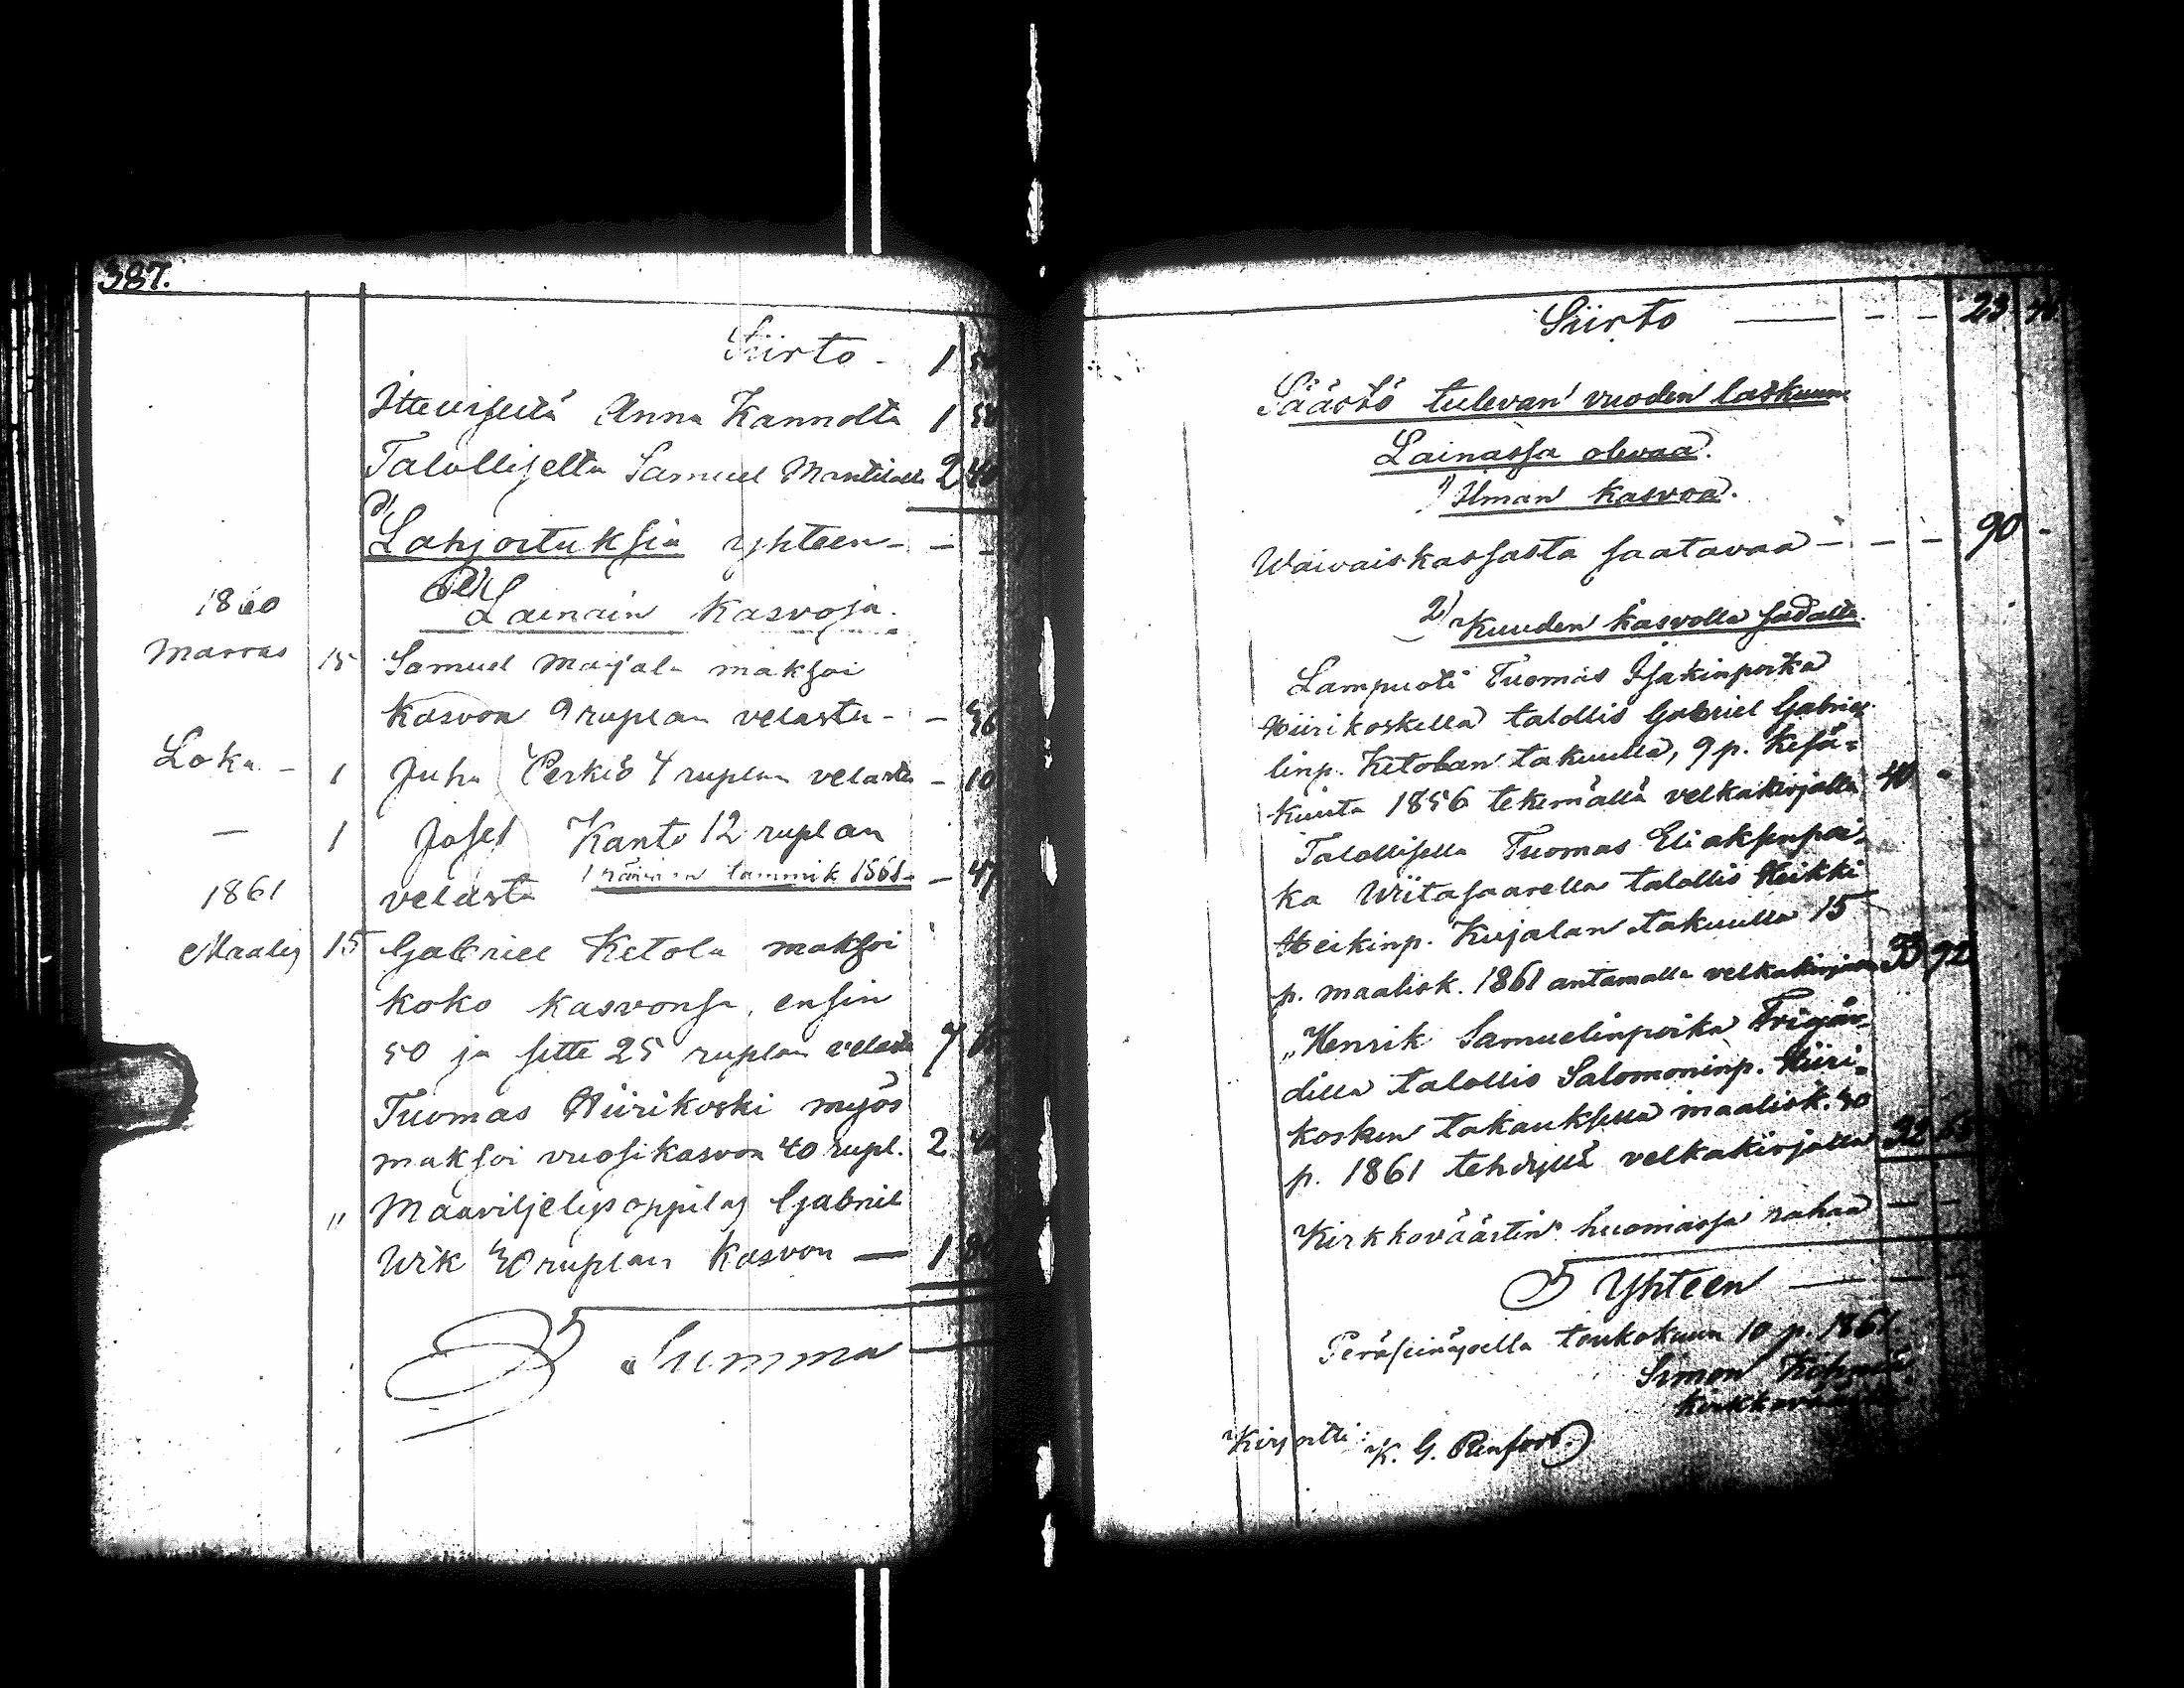 387.
Siirto - 1 50
Ittewiseltä Anna Kannolta 1 50
Talolliselta Samuel Mantilalta 2 40
Lahjoituksia yhteen - - -
1860
Lainain Kasvoja.
Marras 15 Samuel Marjala maksoi
Kasvon 9 ruplan velasta - - 36
Loka - 1 Juha Perkiö 4 ruplan velasta - 10
— 1 Josef Kanto 12 ruplan
velasta 1 päivään tammik 1861 - - 47
1861
Maalis 15 Gabriel Ketola maksoi
koko kasvonsa, ensin
50 ja sitte 25 ruplan velasta
Tuomas Hiirikoski myös
maksoi vuosikasvon 40 rupl. 2 40
" Maaviljelysoppilas Gabriel
Wik 30 ruplan Kasvon — 1 80
Summa —
Siirto — - - - 23
Säästö tulevan vuoden laskuun
Lainassa olevaa.
1) Ilman kasvoa.
Waivaiskassasta saatavaa - - - - 90 -
2) Kuuden kasvolla sadalta.
Lampuoti Tuomas Isakinpoika
Hiirikoskella talollis Gabriel Gabrie-
linp. Ketolan takuulla, 9 p. Kesä-
kuuta 1856 tekemällä velkakirjalla 40 -
Talollisella Tuomas Eliaksenpoi-
ka Wiitasaarella talollis Heikki
Heikinp. Kujalan takuulla 15
p. maalisk. 1861 antamalla velkakirjalla 92
„ Henrik Samuelinpoika
dilla talollis Salomoninp. Hiiri-
kosken takauksella maalisk. 30
p. 1861 tehdyllä velkakirjalla
Kirkkoväärtin huomassa rahaa - -
Yhteen — - -
Peräseinäjoella toukokuun 10 p. 1861.
Simon
Kirkkoväärti
Kirjoitti: K. G. Renfors.